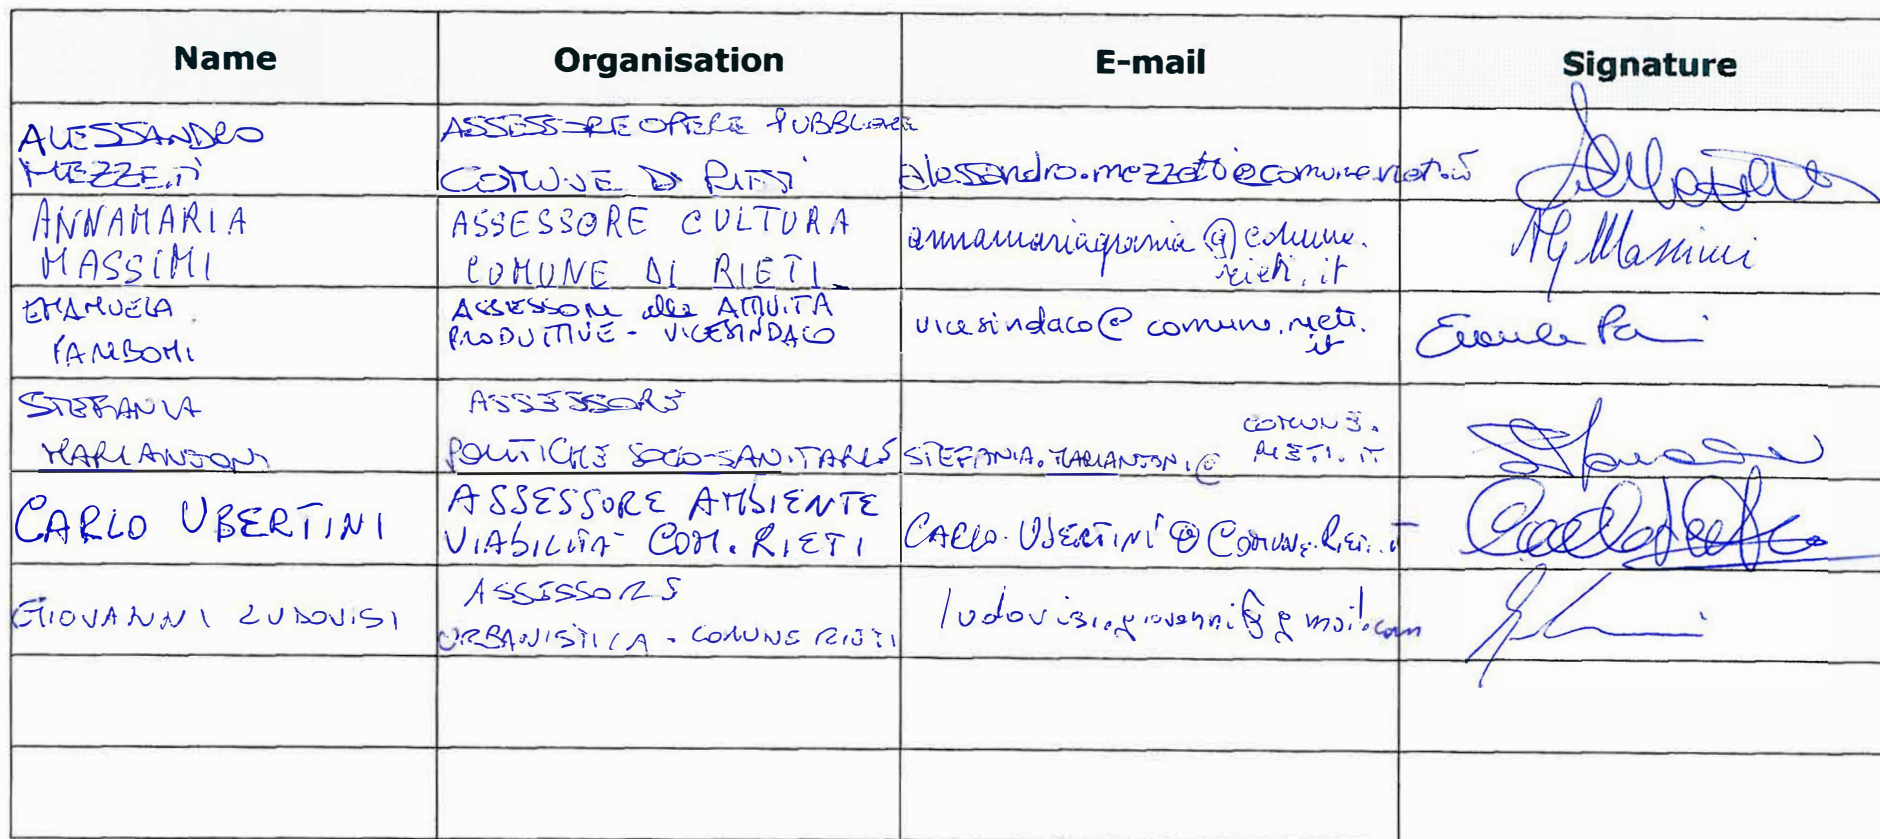 Name Organisation E-mail Signature
ALESSANDRO
MEZZETTI
ASSESSORE OPERE PUBBLICHE
COMUNE DI RIETI
alessandro.mezzetti@comune.rieti.it
ANNAMARIA
MASSIMI
ASSESSORE CULTURA
COMUNE DI RIETI
annamariagrazia@comune.
rieti.it
AG Massimi
EMANUELA
PARIBONI
ASSESSORE alle ATTIVITÀ
PRODUTTIVE - VICESINDACO
vicesindaco@comune.rieti.
it
Emanuela
STEFANIA
MARIANTONI
ASSESSORE
POLITICHE SOCIO-SANITARIE
STEFANIA.MARIANTONI@
COMUNE.
RIETI.IT
CARLO UBERTINI
ASSESSORE AMBIENTE
VIABILITÀ COM. RIETI
CARLO.UBERTINI@COMUNE.RIETI.IT
GIOVANNI LUDOVISI
ASSESSORE
URBANISTICA - COMUNE RIETI
ludovisi.giovanni@gmail.com